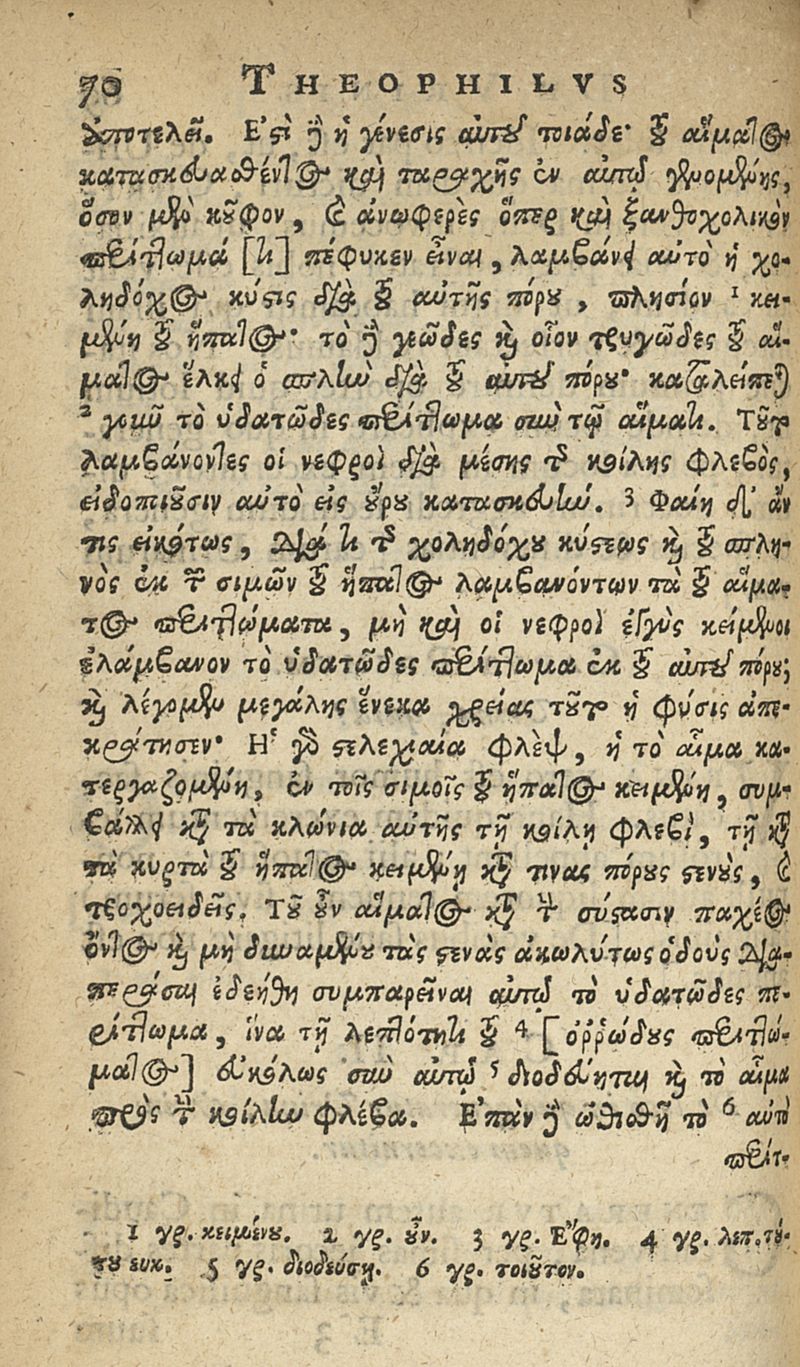 70 THEOPHILVS
ἀποτελεῖ. Ἐστὶ δὲ ἡ γένεσις αὐτοῦ τοιάδε· τοῦ αἵματος
κατασκευασθέντος καὶ ταραχῆς ἐν αὐτῷ γενομένης,
ὅσον μὲν κοῦφον, καὶ ἀνωφερὲς ὅπερ καὶ ξανθοχολικὸν
περίττωμά [τι] πέφυκεν εἶναι, λαμβάνει αὐτὸ ἡ χο-
ληδόχος κύστις διὰ τοῦ αὐτῆς πόρου, πλησίον 1 κει-
μένη τοῦ ἥπατος· τὸ δὲ γεῶδες καὶ οἷον τρυγῶδες τοῦ αἵ-
ματος ἕλκει ὁ σπλὴν διὰ τοῦ αὐτοῦ πόρου· καταλείπεται
2 γοῦν τὸ ὑδατῶδες περίττωμα σὺν τῷ αἵματι. Τοῦτο
λαμβάνοντες οἱ νεφροὶ διὰ μέσης τῆς κοίλης φλεβὸς,
εἰδοποιοῦσιν αὐτὸ εἰς οὔρου κατασκευήν. 3 Φαίη δ' ἄν
τις εἰκότως, διὰ τί τῆς χοληδόχου κύστεως καὶ τοῦ σπλη-
νὸς ἐκ τῶν σιμῶν τοῦ ἥπατος λαμβανόντων τὰ τοῦ αἵμα-
τος περιττώματα, μὴ καὶ οἱ νεφροὶ ἐγγὺς κείμενοι
ἐλάμβανον τὸ ὑδατῶδες περίττωμα ἐκ τοῦ αὐτοῦ πόρου;
καὶ λέγομεν μεγάλης ἕνεκα χρείας τοῦτο ἡ φύσις ἀπε-
κράτησεν· Ἡ γὰρ στελεχιαία φλὲψ, ἡ τὸ αἷμα κα-
τεργαζομένη, ἐν τοῖς σιμοῖς τοῦ ἥπατος κειμένη, συμ-
βάλλει κατὰ τὰ κλώνια αὐτῆς τῇ κοίλῃ φλεβὶ, τῇ κατὰ
τὰ κυρτὰ τοῦ ἥπατος κειμένῃ κατὰ τινας πόρους στενοὺς, καὶ
τριχοειδεῖς. Τοῦ οὖν αἵματος κατὰ τὴν σύστασιν παχέος
ὄντος καὶ μὴ δυναμένου τὰς στενὰς ἀκωλύτως ὁδοὺς δια-
περᾶσαι ἐδεήθη συμπαρεῖναι αὐτῷ τὸ ὑδατῶδες πε-
ρίττωμα, ἵνα τῇ λεπτότητι τοῦ 4 [ὀῤῥώδους περιττώ-
ματος] εὐκόλως σὺν αὐτῷ 5 διοδεύηται καὶ τὸ αἷμα
πρὸς τὴν κοίλην φλέβα. Ἐπὰν δὲ ὠθισθῇ τὸ 6 αὐτὸ
περίτ-
1 γρ. κειμένου. 2 γρ. οὖν. 3 γρ. Ἔφη. 4 γρ. λεπ. τού-
του ευκ. 5 γρ. διοδεύσῃ. 6 γρ. τοιοῦτον.